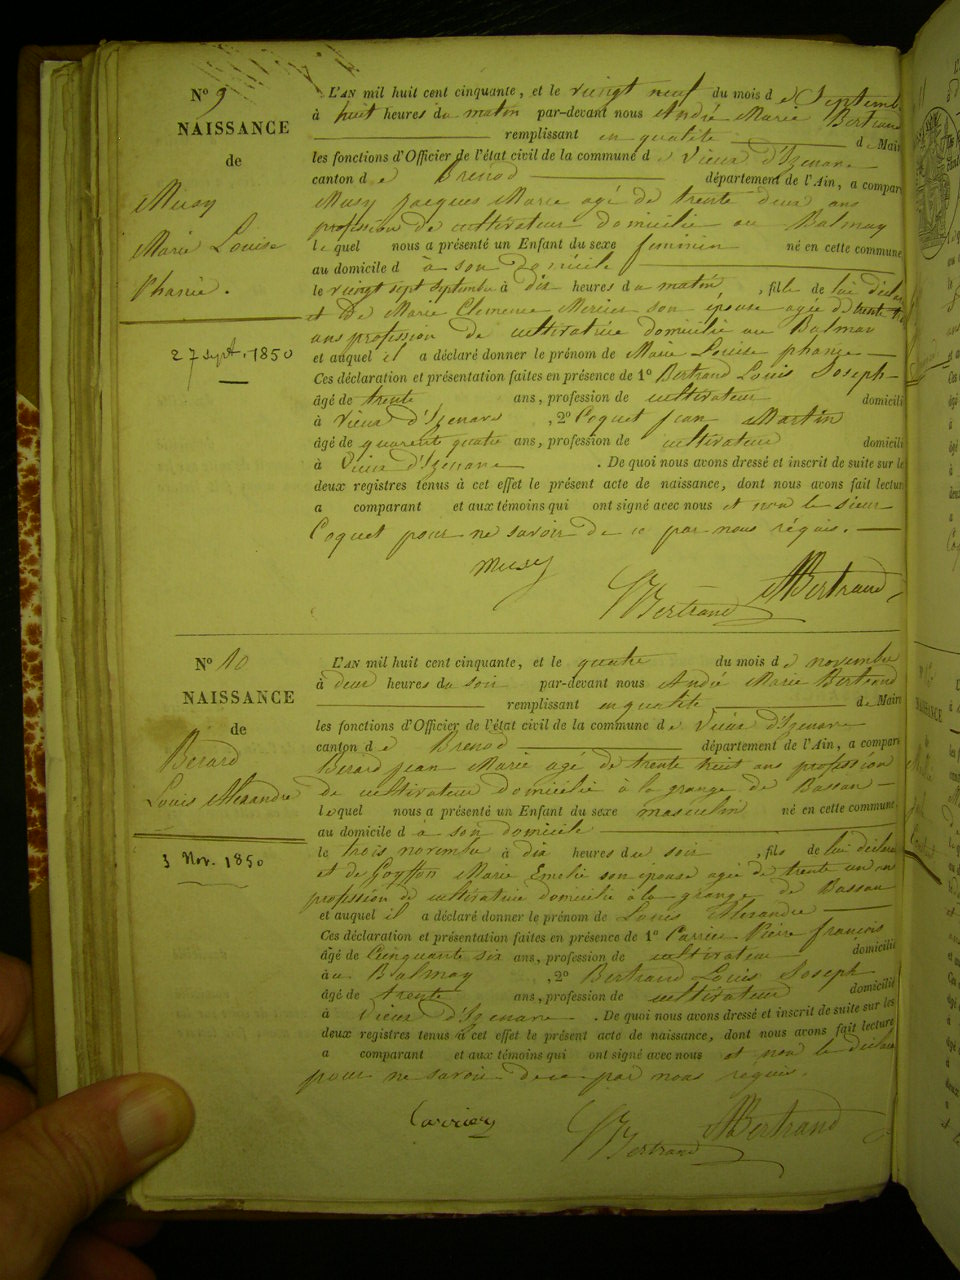 N° 9
NAISSANCE
de
Musy
Marie Louise
Phanie.
27 sept. 1850
L'AN mil huit cent cinquante, et le vingt neuf du mois d e Septemb
à huit heures du matin par-devant nous André Marie Bertrand
remplissant en qualité de Mair
les fonctions d'Officier de l'état civil de la commune d e Vieux d'Izenave
canton d e Brenod département de l'Ain, a compar
Musy Jacques Marie agé de trente deux ans
profession de cultivateur domicilié au Balmay
lequel nous a présenté un Enfant du sexe feminin né en cette commune
au domicile d à son Domicile
le vingt sept septembre à dix heures du matin, fille de lui décla
et De Marie Clemence Mercier son épouse agée de trente
ans profession de cultivatrice domicilié au Balmay
et auquel il a déclaré donner le prénom de Marie Louise phanie
Ces déclaration et présentation faites en présence de 1° Bertrand Louis Joseph
âgé de trente ans, profession de cultivateur domicili
à Vieux d'Izenave, 2° Coquet jean Martin
âgé de quarente quatre ans, profession de cultivateur domicili
à Vieux d'Izenave. De quoi nous avons dressé et inscrit de suite sur le
deux registres tenus à cet effet le présent acte de naissance, dont nous avons fait lectur
a comparant et aux témoins qui ont signé avec nous et non le sieur
Coquet pour ne savoir De ce par nous réquis.
Musy
Bertrand
AMBertrand
N° 10
NAISSANCE
de
Berard
Louis Alexandre
3 Nov. 1850
L'AN mil huit cent cinquante, et le quatre du mois d e novembre
à deux heures du soir par-devant nous André Marie Bertrand
remplissant en qualité de Mair
les fonctions d'Officier de l'état civil de la commune de Vieux d'Izenave
canton d e Brenod département de l'Ain, a compar
Berard jean Marie agé de trente huit ans profession
de cultivateur domicilié à la grange de Bassan
lequel nous a présenté un Enfant du sexe masculin né en cette commune
au domicile d à son domicile
le trois novembre à dix heures du soir, fils de lui déclara
et de Goyffon Marie Emelie son épouse agée de trente un an
profession de cultivatrice domicilié à la grange de Bassan
et auquel il a déclaré donner le prénom de Louis Alexandre
Ces déclaration et présentation faites en présence de 1° Carrier Pierre françois
âgé de Cinquante six ans, profession de cultivateur domicilié
à u Balmay, 2° Bertrand Louis Joseph
âgé de trente ans, profession de cultivateur domicilié
à Vieux d'Izenave. De quoi nous avons dressé et inscrit de suite sur les
deux registres tenus à cet effet le présent acte de naissance, dont nous avons fait lecture
a comparant et aux témoins qui ont signé avec nous et non le déclara
pour ne savoir de ce par nous requis.
Carrier
Bertrand
AMBertrand